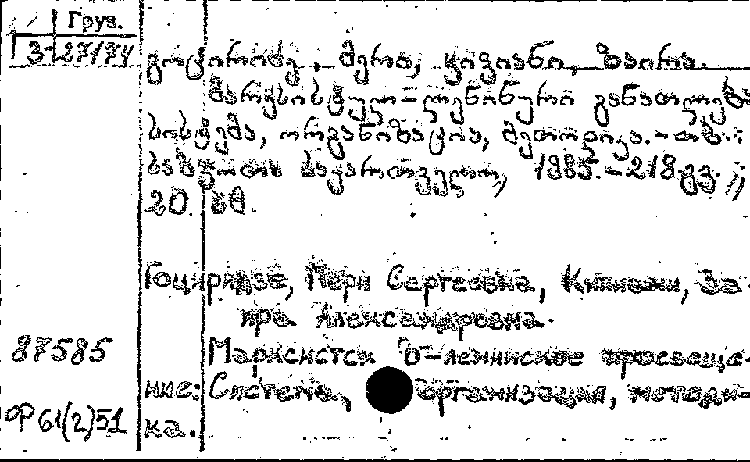 Груз.
3-27174
გოცირიძე, მერი, ყიფიანი, ზაირა.
მარქსისტულ-ლენინური განათლება:
სისტემა, ორგანიზაცია, მეთოდიკა.-თბ.:
საბჭოთა საქართველო, 1985.-218გვ.;
20 სმ.
Гоциридзе, Мери Сергеевна, Кипиани, За-
ира Александровна.
87585 Марксистско-ленинское просвеще-
ние: Система, организация, методи-
Ф61(2)51 ка.